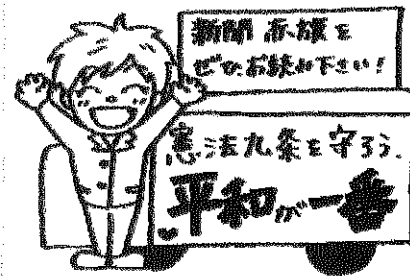 新聞 赤旗を
ぜひお読み下さい!
憲法九条を守ろう.
平和が一番